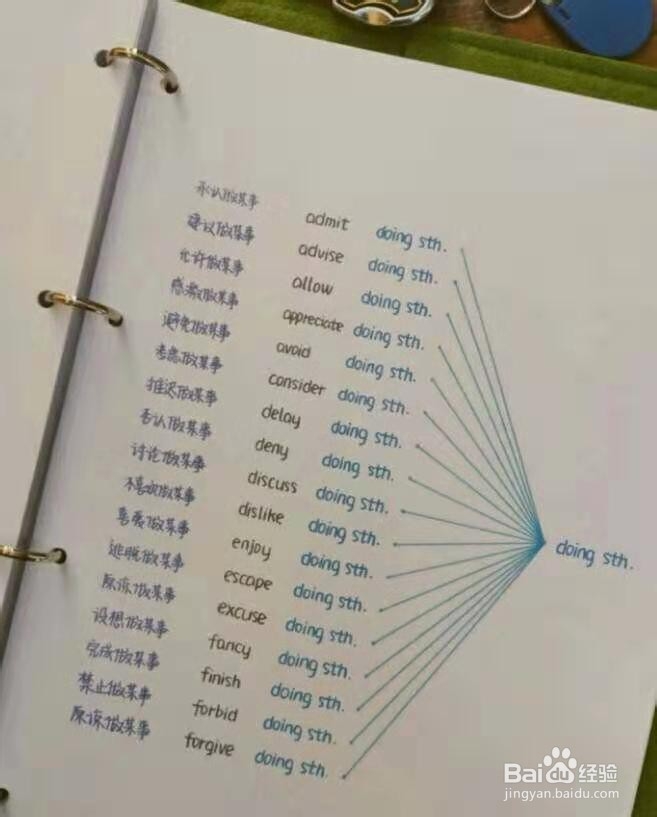 承认做某事 admit doing sth.
建议做某事 advise doing sth.
允许做某事 allow doing sth.
感激做某事 appreciate doing sth.
避免做某事 avoid doing sth.
考虑做某事 consider doing sth.
推迟做某事 delay doing sth.
否认做某事 deny doing sth.
讨论做某事 discuss doing sth.
不喜欢做某事 dislike doing sth.
喜爱做某事 enjoy doing sth.
逃脱做某事 escape doing sth.
原谅做某事 excuse doing sth.
设想做某事 fancy doing sth.
完成做某事 finish doing sth.
禁止做某事 forbid doing sth.
原谅做某事 forgive doing sth.
doing sth.
Baidu经验
jingyan.baidu.com